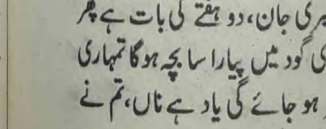 میری جان، دو ہفتے کی بات ہے پھر
گود میں پیارا سا بچہ ہوگا تمہاری
ہو جائے گی یاد ہے ناں، تم نے